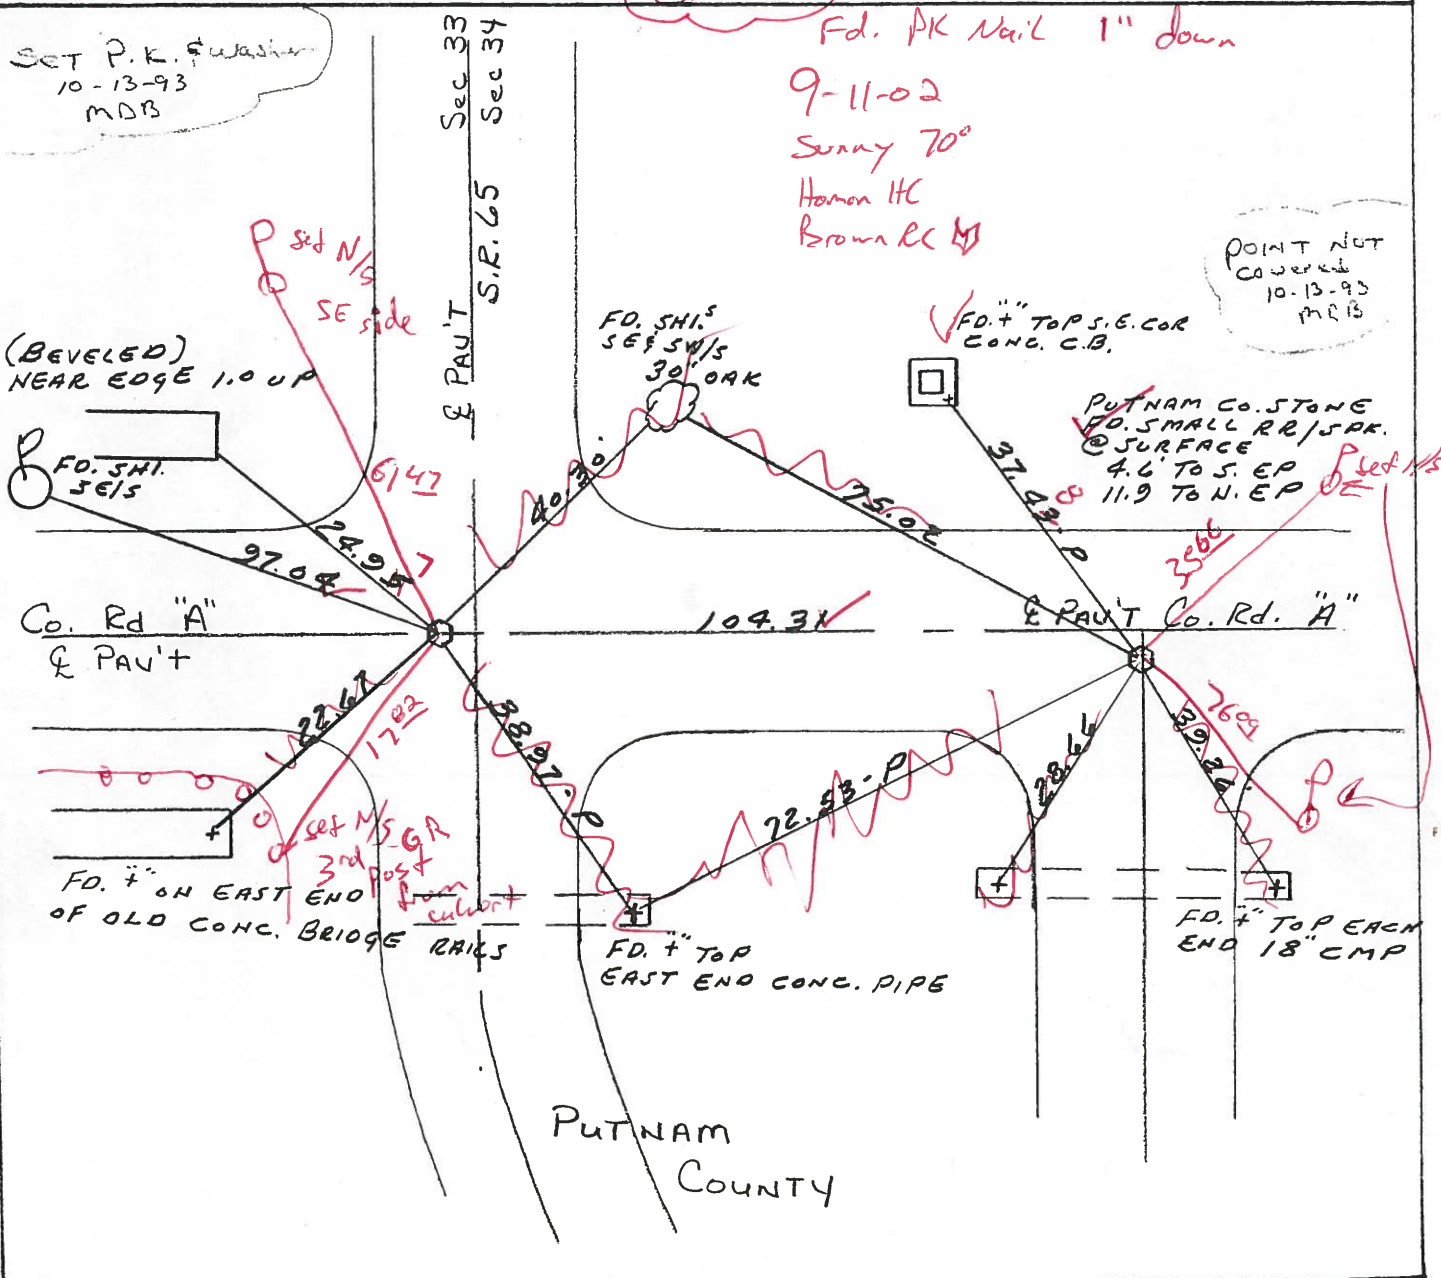 SET P.K. & washer
10-13-93
MDB
Sec 33
Sec 34
Fd. PK Nail 1" down
9-11-02
Sunny 70°
Homon HC
Brown RC
S.R. 65
℄ PAV'T
set N/S
SE side
POINT NOT
covered
10-13-93
MRB
(BEVELED)
NEAR EDGE 1.0 UP
FD. SHI.
SE/S
FD. SHI.S
SE & SW/S
30" OAK
FD. "+" TOP S.E. COR
CONC. C.B.
PUTNAM CO. STONE
FD. SMALL RR/SPK.
@ SURFACE
4.6' TO S. EP
11.9 TO N. EP
set N/S
6147
24.95
7
97.04
40.30.
75.02
37.43.P
8
3566
Co. Rd "A"
℄ PAV'T
104.31
℄ PAV'T Co. Rd. "A"
22.67
1782
38.97.P
72.53-P
28.66
39.26
7609
set N/S GR
3rd post
from
culvert
FD. "+" ON EAST END
OF OLD CONC. BRIDGE RAILS
FD. "+" TOP
EAST END CONC. PIPE
FD. "+" TOP EACH
END 18" CMP
PUTNAM
COUNTY